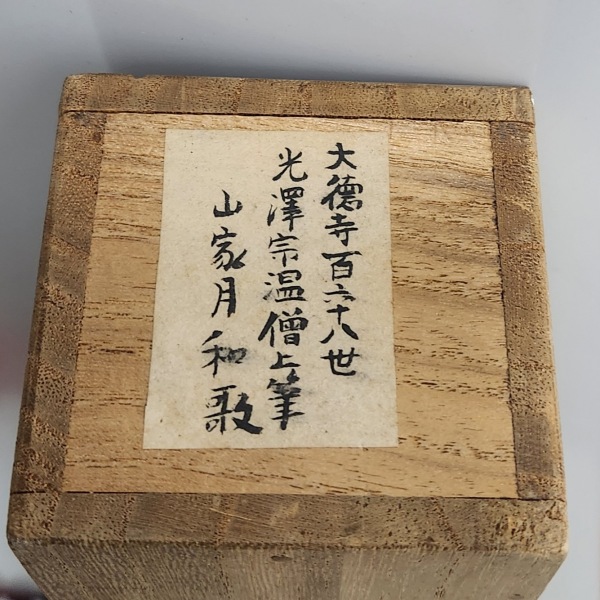 大徳寺百六十八世
光澤宗温僧上筆
山家月和歌